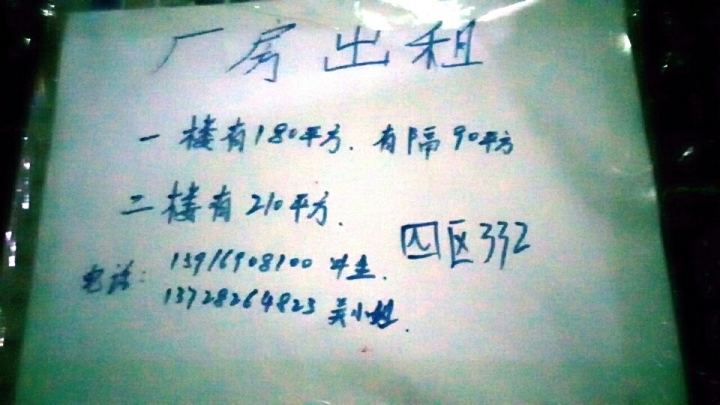 厂房出租
一楼有180平方.有隔90平方
二楼有210平方.
四区332
电话: 13916908100
13728264823 吴小姐.